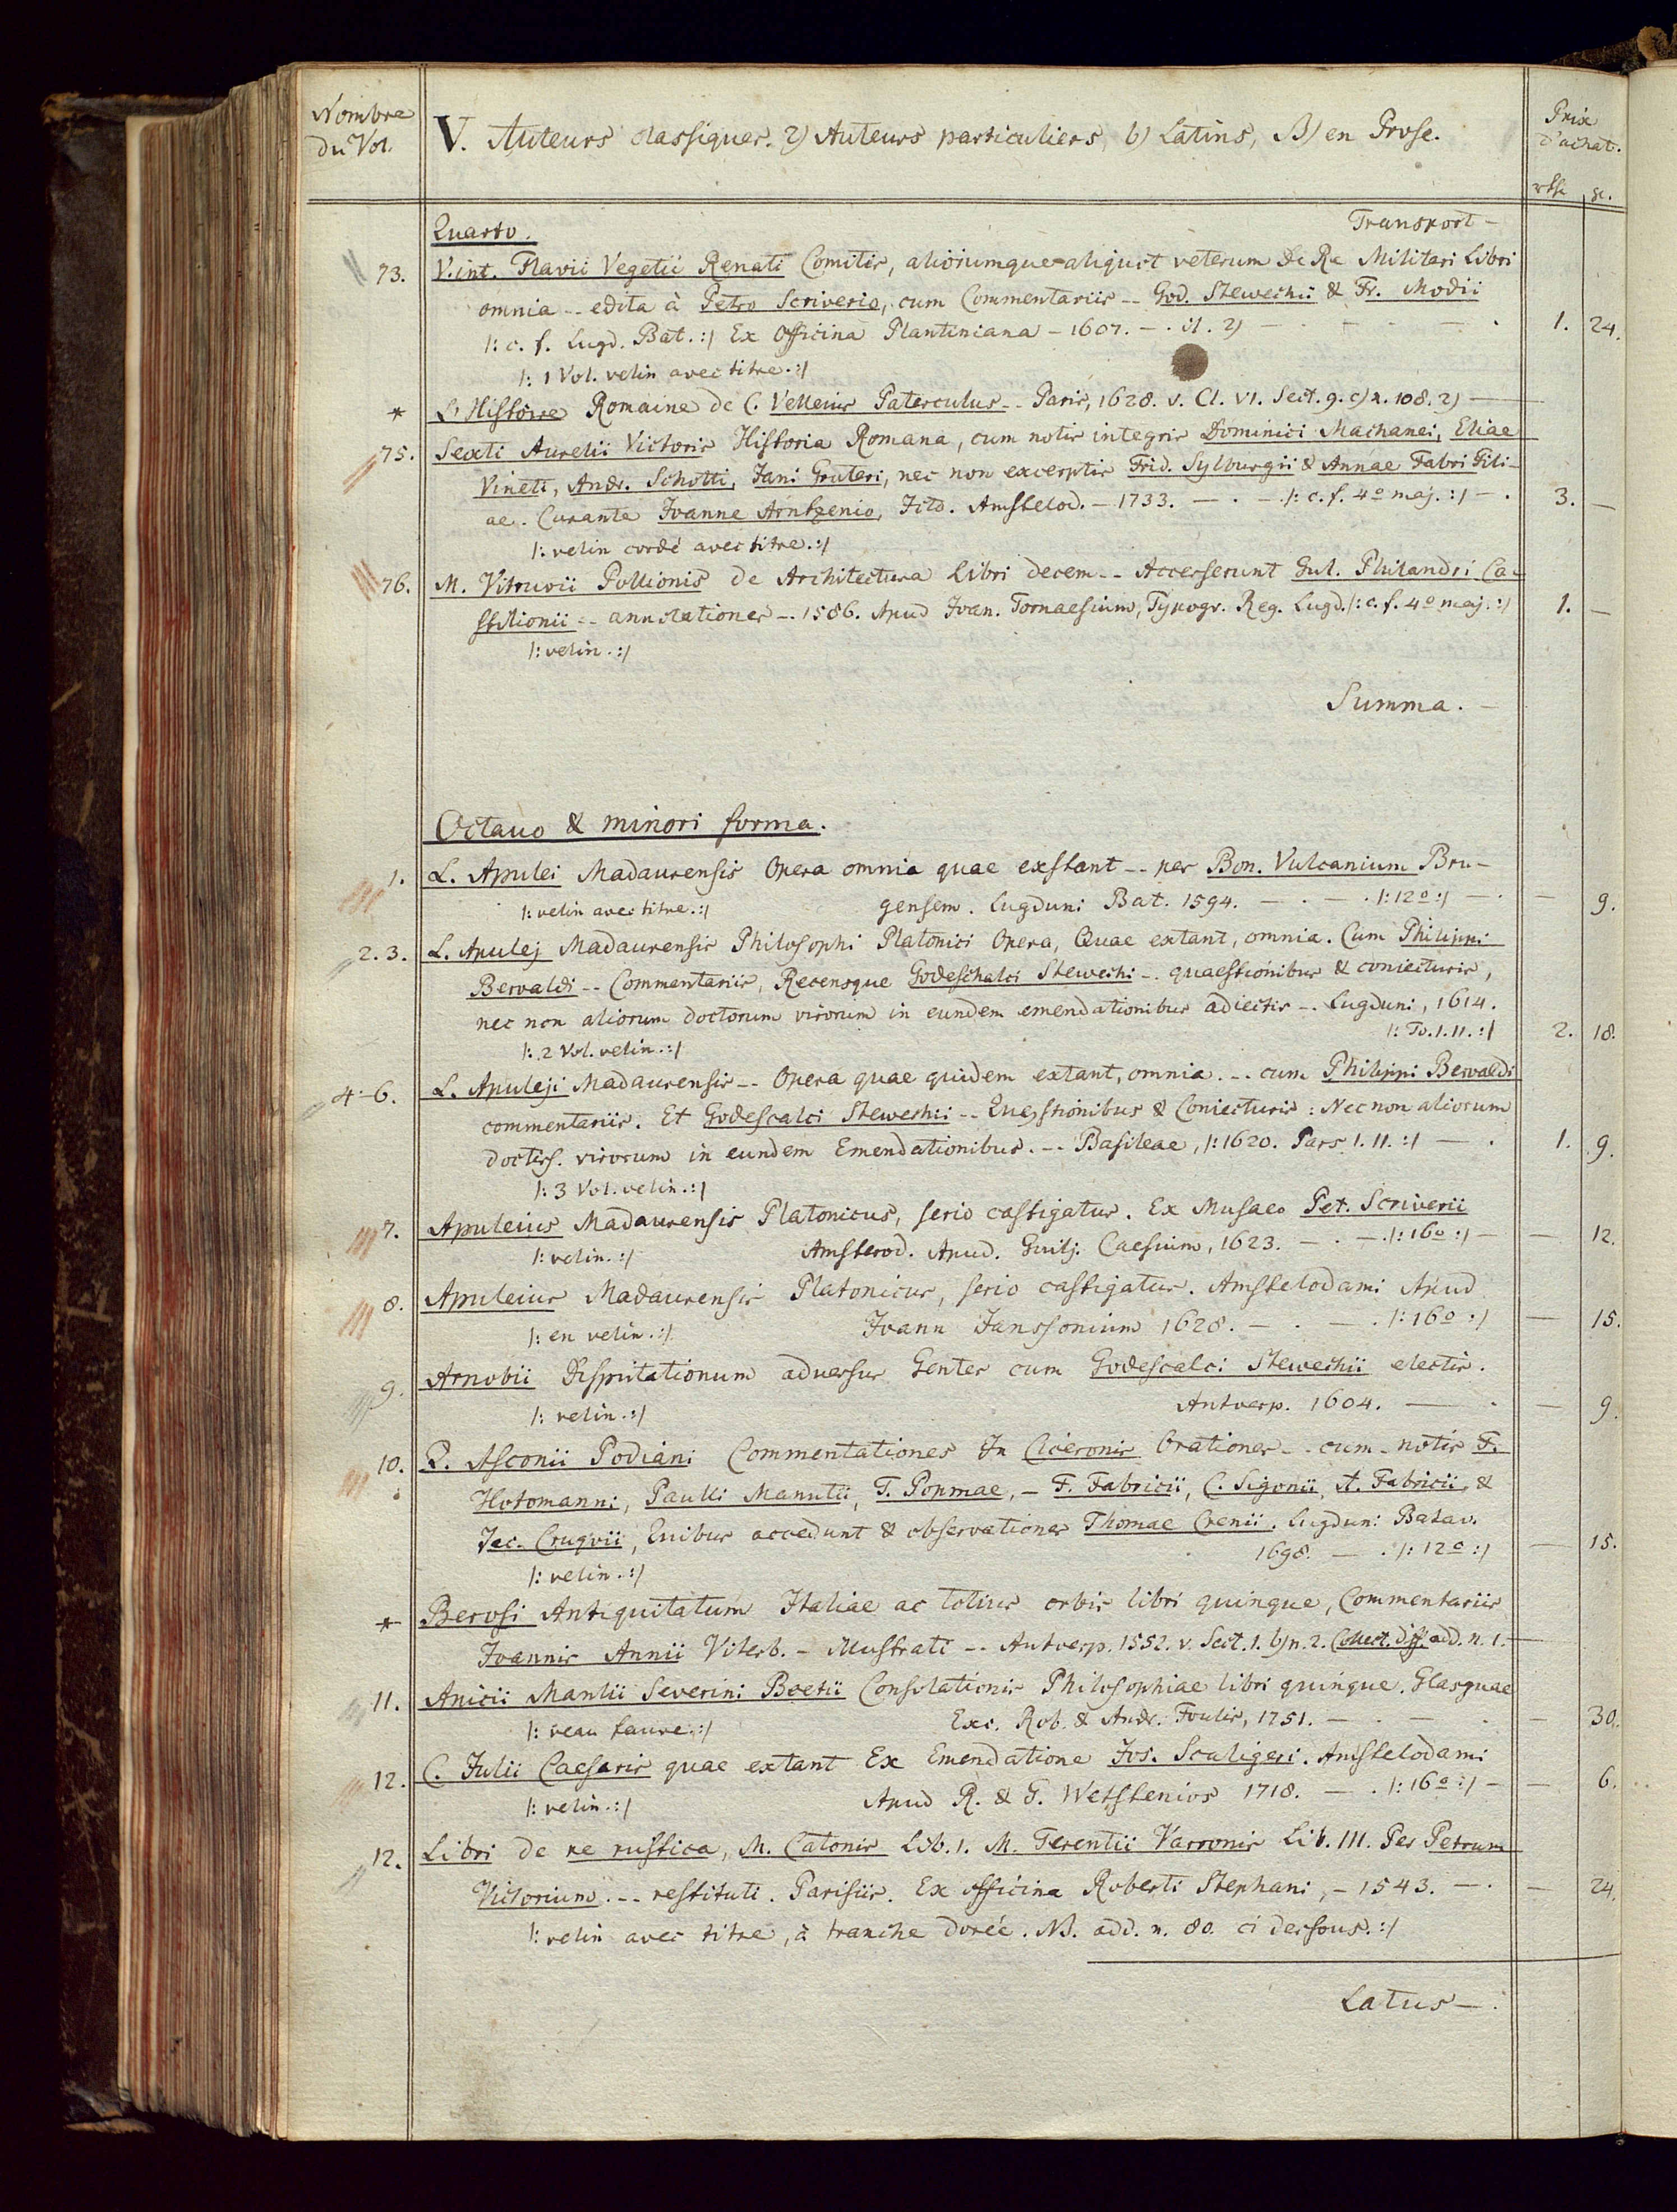 Nombre du Vol.
V. Auteurs classiques. 2) Auteurs particuliers, b) Latins, B) en Prose.
Prix d'achat.
rthl gr.
Quarto. Transport –
73. V. inl. Flavii Vegetii Renati Comitis, aliorumque aliquot veterum De Re Militari Libri
omnia -- edita à Petro Scriverio, cum Commentariis -- God. Stewechii & Fr. Modii
/: c. f. Lugd. Bat. :/ Ex Officina Plantiniana – 1607. – . 1. 24.
/: 1 Vol. velin avec titre. :/
* L'Histoire Romaine de C. Velleius Paterculus -- Paris, 1628. v. Cl. VI. Sect. 9. c) n. 108. 2) —
75. Sexti Aurelii Victoris Historia Romana, cum notis integris Dominici Machanei, Eliae
Vineti, Andr. Schotti, Jani Gruteri, nec non excerptis Frid. Sylburgii & Annae Fabri Fili-
ae. Curante Joanne Arntzenio, Jcto. Amstelod. – 1733. — . — /: c. f. 4º maj. :/ — . 3. —
/: velin cordé avec titre. :/
76. M. Vitruvii Pollionis de Architectura Libri decem -- Accesserunt Gul. Philandri Ca-
stilionii -- annotationes -- 1586. Apud Joan. Tornaesium, Typogr. Reg. Lugd. /: c. f. 4º maj. :/ 1. —
/: velin. :/
Summa. –
Octavo & minori forma.
1. L. Apulei Madaurensis Opera omnia quae exstant -- per Bon. Vulcanium Bru-
/: velin avec titre. :/ gensem. Lugduni Bat. 1594. — . — . /: 12º :/ — . — 9.
2. 3. L. Apulej Madaurensis Philosophi Platonici Opera, Quae extant, omnia. Cum Philippi
Beroaldi -- Commentariis, Recensque Godeschalci Stewechi -- quaestionibus & coniecturis,
nec non aliorum doctorum virorum in eundem emendationibus adiectis -- Lugduni, 1614.
/: 2 Vol. velin. :/ /: To. I. II. :/ 2. 18.
4-6. L. Apuleji Madaurensis -- Opera quae quidem extant, omnia. -- cum Philippi Beroaldi
commentariis. Et Godescalci Stewechii -- Quaestionibus & Coniecturis: Nec non aliorum
doctiss. virorum in eundem Emendationibus. -- Basileae, /: 1620. Pars I. II. :/ — . 1. 9.
/: 3 Vol. velin. :/
7. Apuleius Madaurensis Platonicus, serio castigatus. Ex Musaeo Pet. Scriverii
/: velin. :/ Amsterod. Apud. Guilj. Caesium, 1623. — . — . /: 16º :/ — — 12.
8. Apuleius Madaurensis Platonicus, serio castigatus. Amstelodami Apud
/: en velin. :/ Joann Janssonium 1628. — . — . /: 16º :/ — 15.
9. Arnobii Disputationum adversus Gentes cum Godescalci Stewechii electis.
/: velin. :/ Antverp. 1604. — . — 9.
10. Q. Asconii Pediani Commentationes In Ciceronis Orationes -- cum notis F.
Hotomanni, Paulli Manutii, T. Popmae, – F. Fabricii, C. Sigonii, A. Fabricii, &
Jac. Cruqvii, Quibus accedunt & observationes Thomae Crenii. Lugduni Batav.
/: velin. :/ 1698. — . /: 12º :/ — 15.
* Berosi Antiquitatum Italiae ac totius orbis libri quinque, Commentariis
Joannis Annii Viterb. – Illustrati -- Antverp. 1552. v. Sect. 1. b) n. 2. Collect. diff. add. n. 1. —
11. Anicii Manlii Severini Boetii Consolationis Philosophiae libri quinque. Glasguae
/: veau fauve. :/ Exc. Rob. & Andr. Foulis, 1751. — . — . — 30.
12. C. Julii Caesaris quae extant Ex Emendatione Jos. Scaligeri. Amstelodami
/: velin. :/ Apud R. & G. Wetstenios 1718. — . /: 16º :/ — — 6.
12. Libri de re rustica, M. Catonis Lib. I. M. Terentii Varronis Lib. III. Per Petrum
Victorium. -- restituti. Parisiis. Ex officina Roberti Stephani, – 1543. — . — 24.
/: velin avec titre, à tranche dorée. NB. add. n. 80. ci dessous. :/
Latus — .